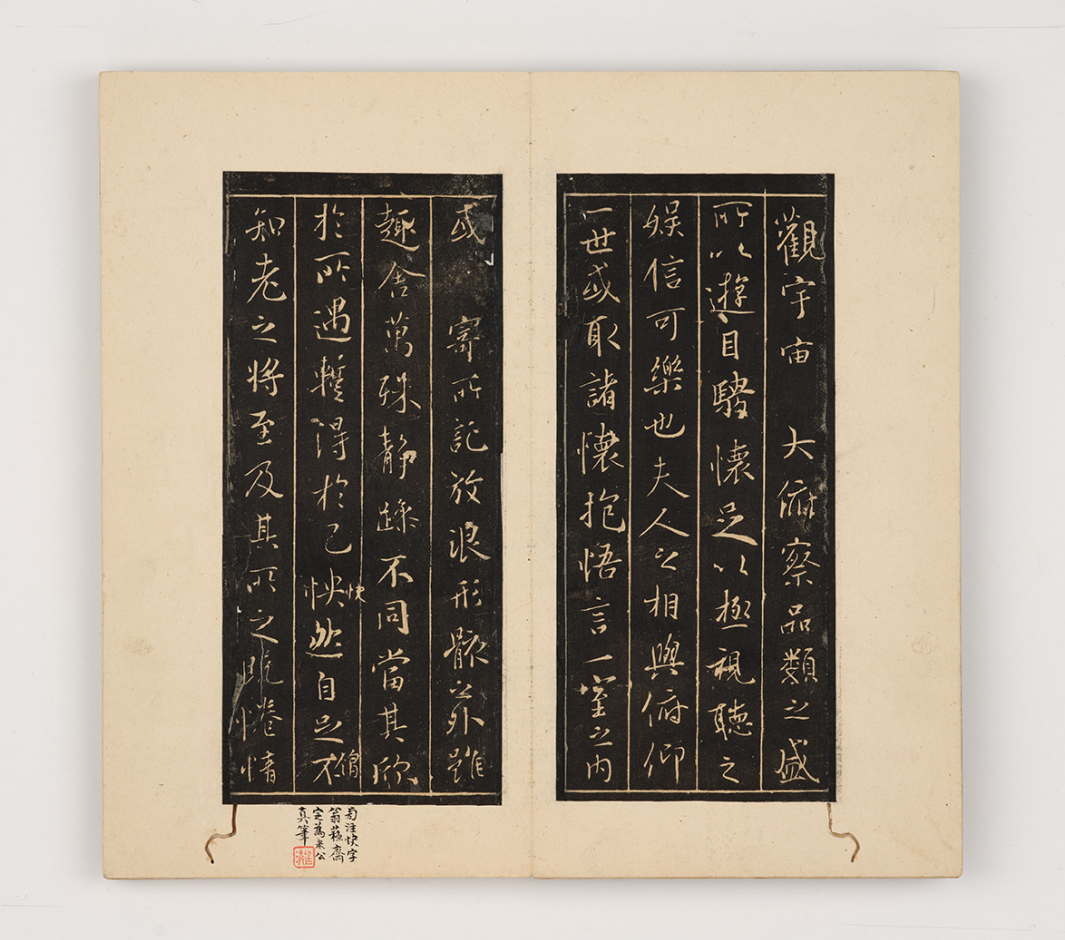 觀宇宙 大俯察品類之盛
所以遊目騁懷足以極視聽之
娛信可樂也夫人之相與俯仰
一世或取諸懷抱悟言一室之內
或 寄所託放浪形骸之外雖
趣舍萬殊靜躁不同當其欣
於所遇暫得於己怏然自足不
快
僧
知老之將至及其所之既惓情
旁注快字
翁蘓齋
定為米公
真筆